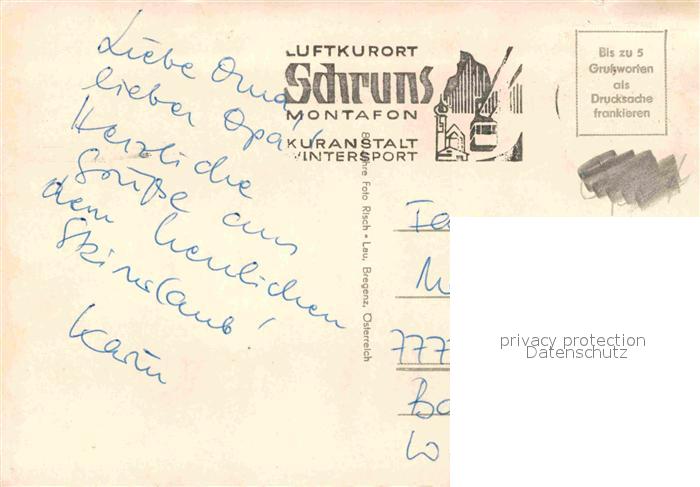 Liebe Oma,
lieber Opa!
Herzliche
Grüße aus
dem herrlichen
Skiurlaub!
Karin
LUFTKURORT
Schruns
MONTAFON
KURANSTALT
WINTERSPORT
Bis zu 5
Grußworten
als
Drucksache
frankieren
80 Jahre Foto Risch • Lau, Bregenz, Österreich
Fa
777
Ba
W
privacy protection
Datenschutz